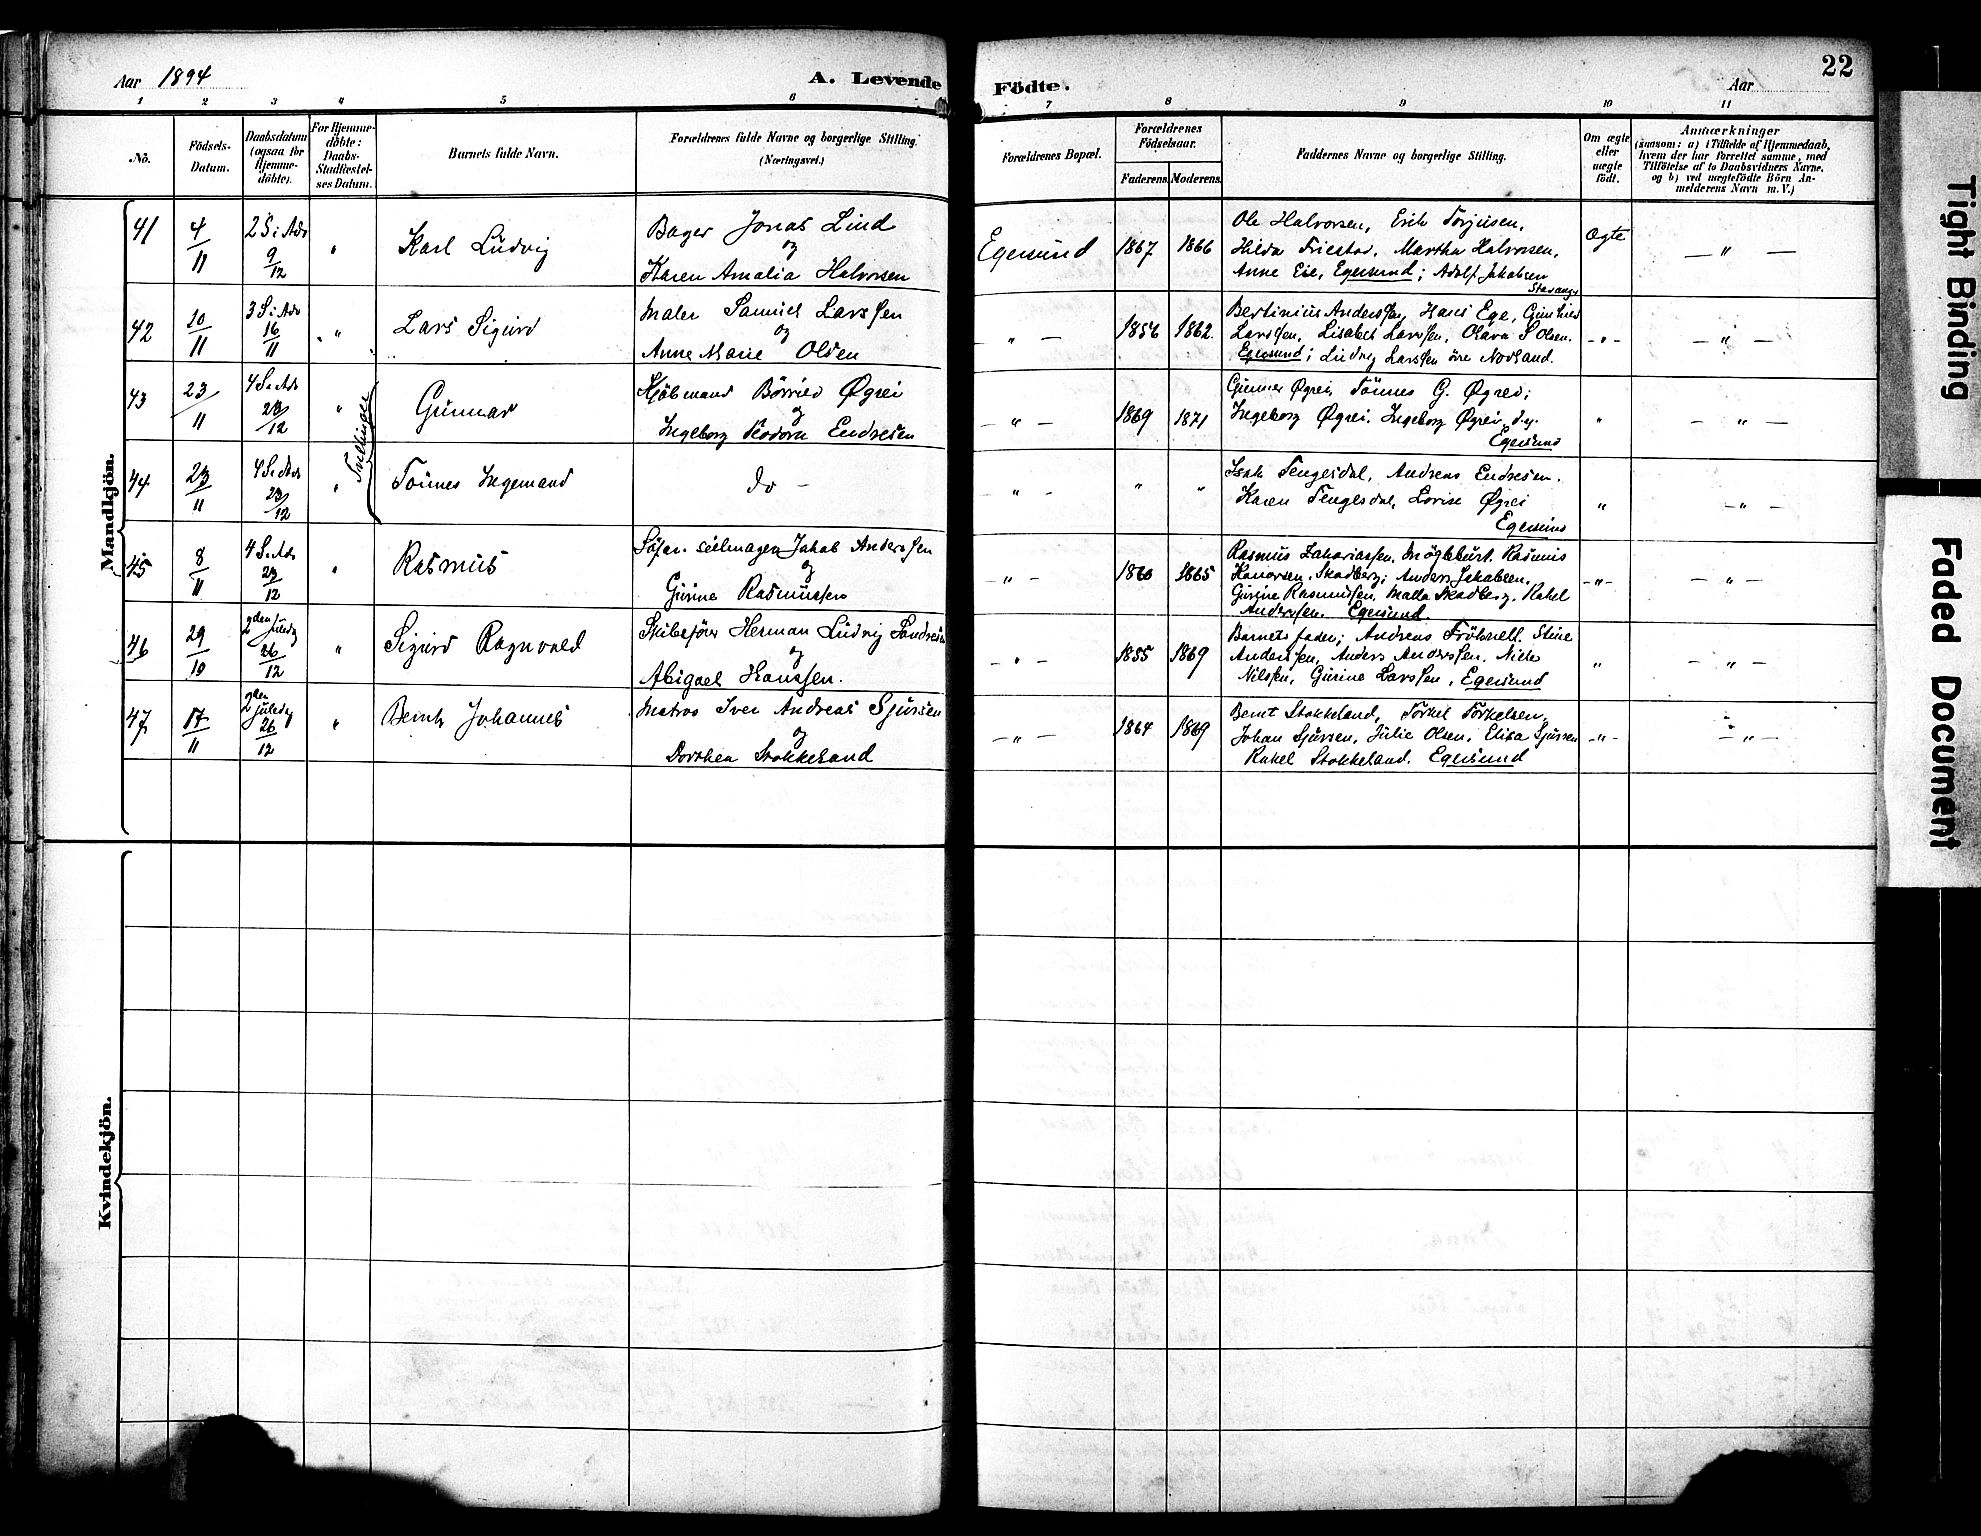 Aar 1894
A. Levende Födte.
22
Aar
1 2 3 4 5 6 7 8 9 10 11
No.
Födsels-
Datum.
Daabsdatum
(ogsaa for
Hjemme-
döbte).
For Hjemme-
döbte:
Daabs-
Stadfæstel-
ses Datum.
Barnets fulde Navn.
Forældrenes fulde Navne og borgerlige Stilling.
(Næringsvei.)
Forældrenes Bopæl.
Forældrenes
Födselsaar.
Faderens. Moderens.
Faddernes Navne og borgerlige Stilling.
Om ægte
eller
uægte
födt.
Anmærkninger
(saasom: a) i Tilfælde af Hjemmedaab,
hvem der har forrettet samme, med
Tilföielse af to Daabsvidners Navne,
og b) ved uægtefödte Börn An-
melderens Navn m. V.)
Mandkjön.
41 4/11 2 S. i Adv 9/12 " Karl Ludvig
Bager Jonas Lind
og
Karen Amalia Halvorsen
Egersund 1867 1866
Ole Halvorsen, Erik Torjusen,
Hilda Friestad, Martha Halvorsen,
Anne Eie, Egersund; Adolf Jakobsen
Stavanger
Ægte — " —
42 10/11 3 S. i Adv 16/11 " Lars Sigurd
Maler Samuel Larssen
og
Anne Marie Olsen
" — 1856 1862.
Bertinius Anderssen, Hans Ege, Gunhild
Larssen, Lisabet Larssen, Olava S Olsen.
Egersund; Ludvig Larssen öre Nodland.
- " - — " —
43 23/11 4 S. i Adv 23/12 " Gunnar
Tvillinger
Kjöbmand Börried Øgrei
og
Ingeborg Teodora Endresen
— " — 1869 1871
Gunnar Øgrei, Tönnes G. Øgrei;
Ingeborg Øgrei, Ingeborg Øgrei d.y.
Egersund
" — " —
44 23/11 4 S. i Adv 23/12 " Tönnes Ingemand
do —
— " — " "
Isak Tengesdal, Andreas Endresen.
Karen Tengesdal, Lovise Øgrei
Egersund
" — " —
45 8/11 4 S. i Adv 23/12 " Rasmus
Jakob Anderssen
og
Gurine Rasmussen
— " — 1860 1865
Rasmus Zakariassen, Rasmus
Skadberg; Anders Jakobsen.
Gurine Rasmussen, Malla Skadberg, Rakel
Anderssen. Egersund.
- " - — " —
46 29/10 2den Juledg 26/12 " Sigurd Ragnvald
Skibsförer Herman Ludvig
og
Abigael Hanssen.
— " — 1855 1869
Barnets fader; Andreas Stine
Anderssen, Anders Anderssen.
Nilssen, Gurine Larssen, Egersund
" — " —
47 17/11 2den Juledg 26/12 " Bernt Johannes
Matros Iver Andreas Sjursen
og
Dorthea Stokkeland
— " — 1864 1869
Bernt Stokkeland, Torkel Torkelsen,
Johan Sjursen, Julie Olsen, Elisa Sjursen
Rakel Stokkeland. Egersund
- " - — " —
Kvindekjön.
Tight Binding
Faded Document